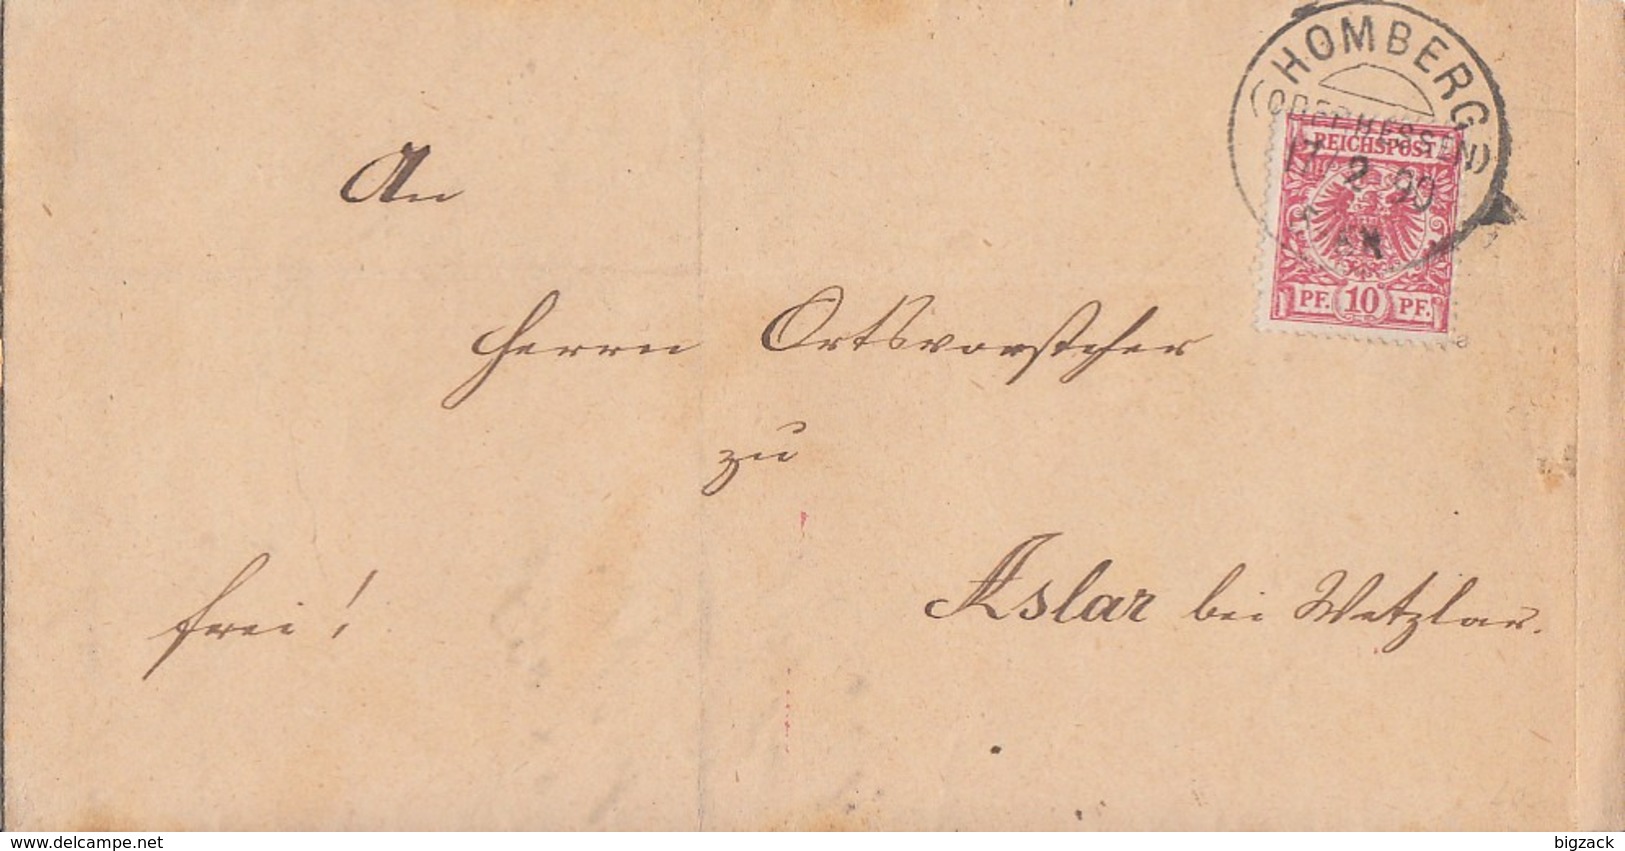 HOMBERG
(OBERHESSEN)
REICHSPOST
2 90
PF. 10 PF.
An
Herrn Ortsvorsteher
zu
Aslar bei Wetzlar.
frei!
www.delcampe.net
bigzack